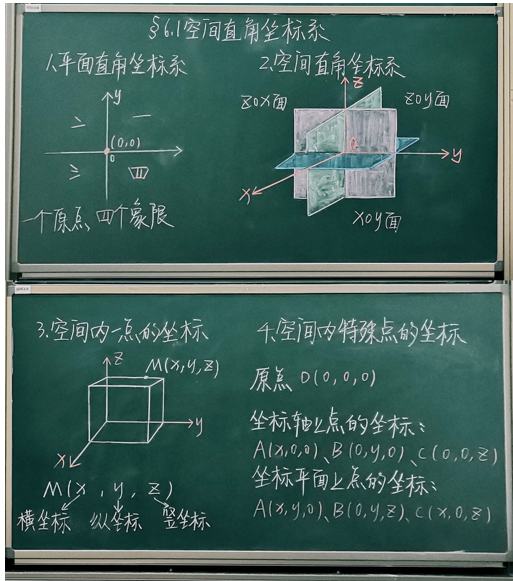 §6.1空间直角坐标系
1.平面直角坐标系
y
二 一
(0,0)
0
三 四
一个原点,四个象限
2.空间直角坐标系
z
zox面 zoy面
y
x
xoy面
3.空间内一点的坐标
z
M(x,y,z)
y
x
M(x,y,z)
横坐标 纵坐标 竖坐标
4.空间内特殊点的坐标
原点 O(0,0,0)
坐标轴上点的坐标:
A(x,0,0)、B(0,y,0)、C(0,0,z)
坐标平面上点的坐标:
A(x,y,0)、B(0,y,z)、C(x,0,z)